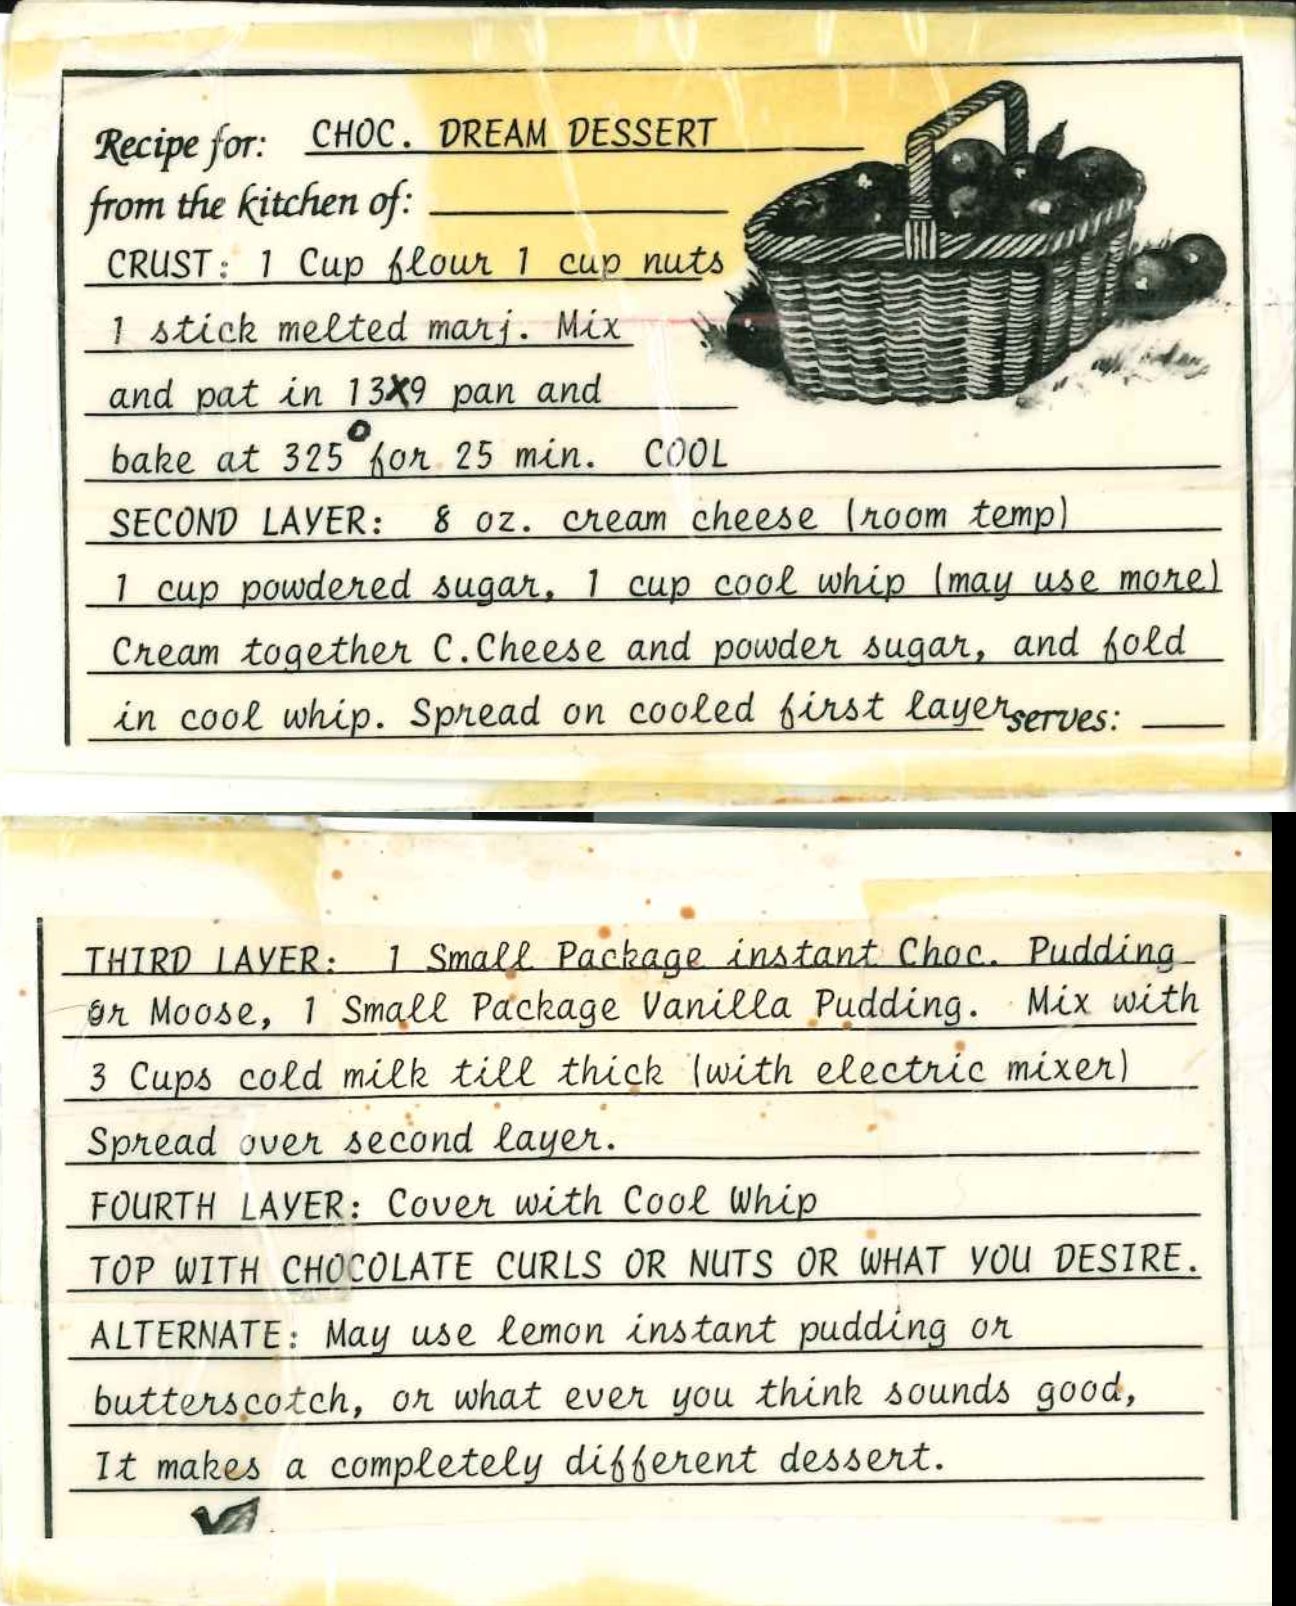 Recipe for: CHOC. DREAM DESSERT
from the kitchen of:
CRUST: 1 Cup flour 1 cup nuts
1 stick melted marj. Mix
and pat in 13X9 pan and
bake at 325° for 25 min. COOL
SECOND LAYER: 8 oz. cream cheese (room temp)
1 cup powdered sugar, 1 cup cool whip (may use more)
Cream together C.Cheese and powder sugar, and fold
in cool whip. Spread on cooled first layer
serves:
THIRD LAYER: 1 Small Package instant Choc. Pudding
or Moose, 1 Small Package Vanilla Pudding. Mix with
3 Cups cold milk till thick (with electric mixer)
Spread over second layer.
FOURTH LAYER: Cover with Cool Whip
TOP WITH CHOCOLATE CURLS OR NUTS OR WHAT YOU DESIRE.
ALTERNATE: May use lemon instant pudding or
butterscotch, or what ever you think sounds good,
It makes a completely different dessert.